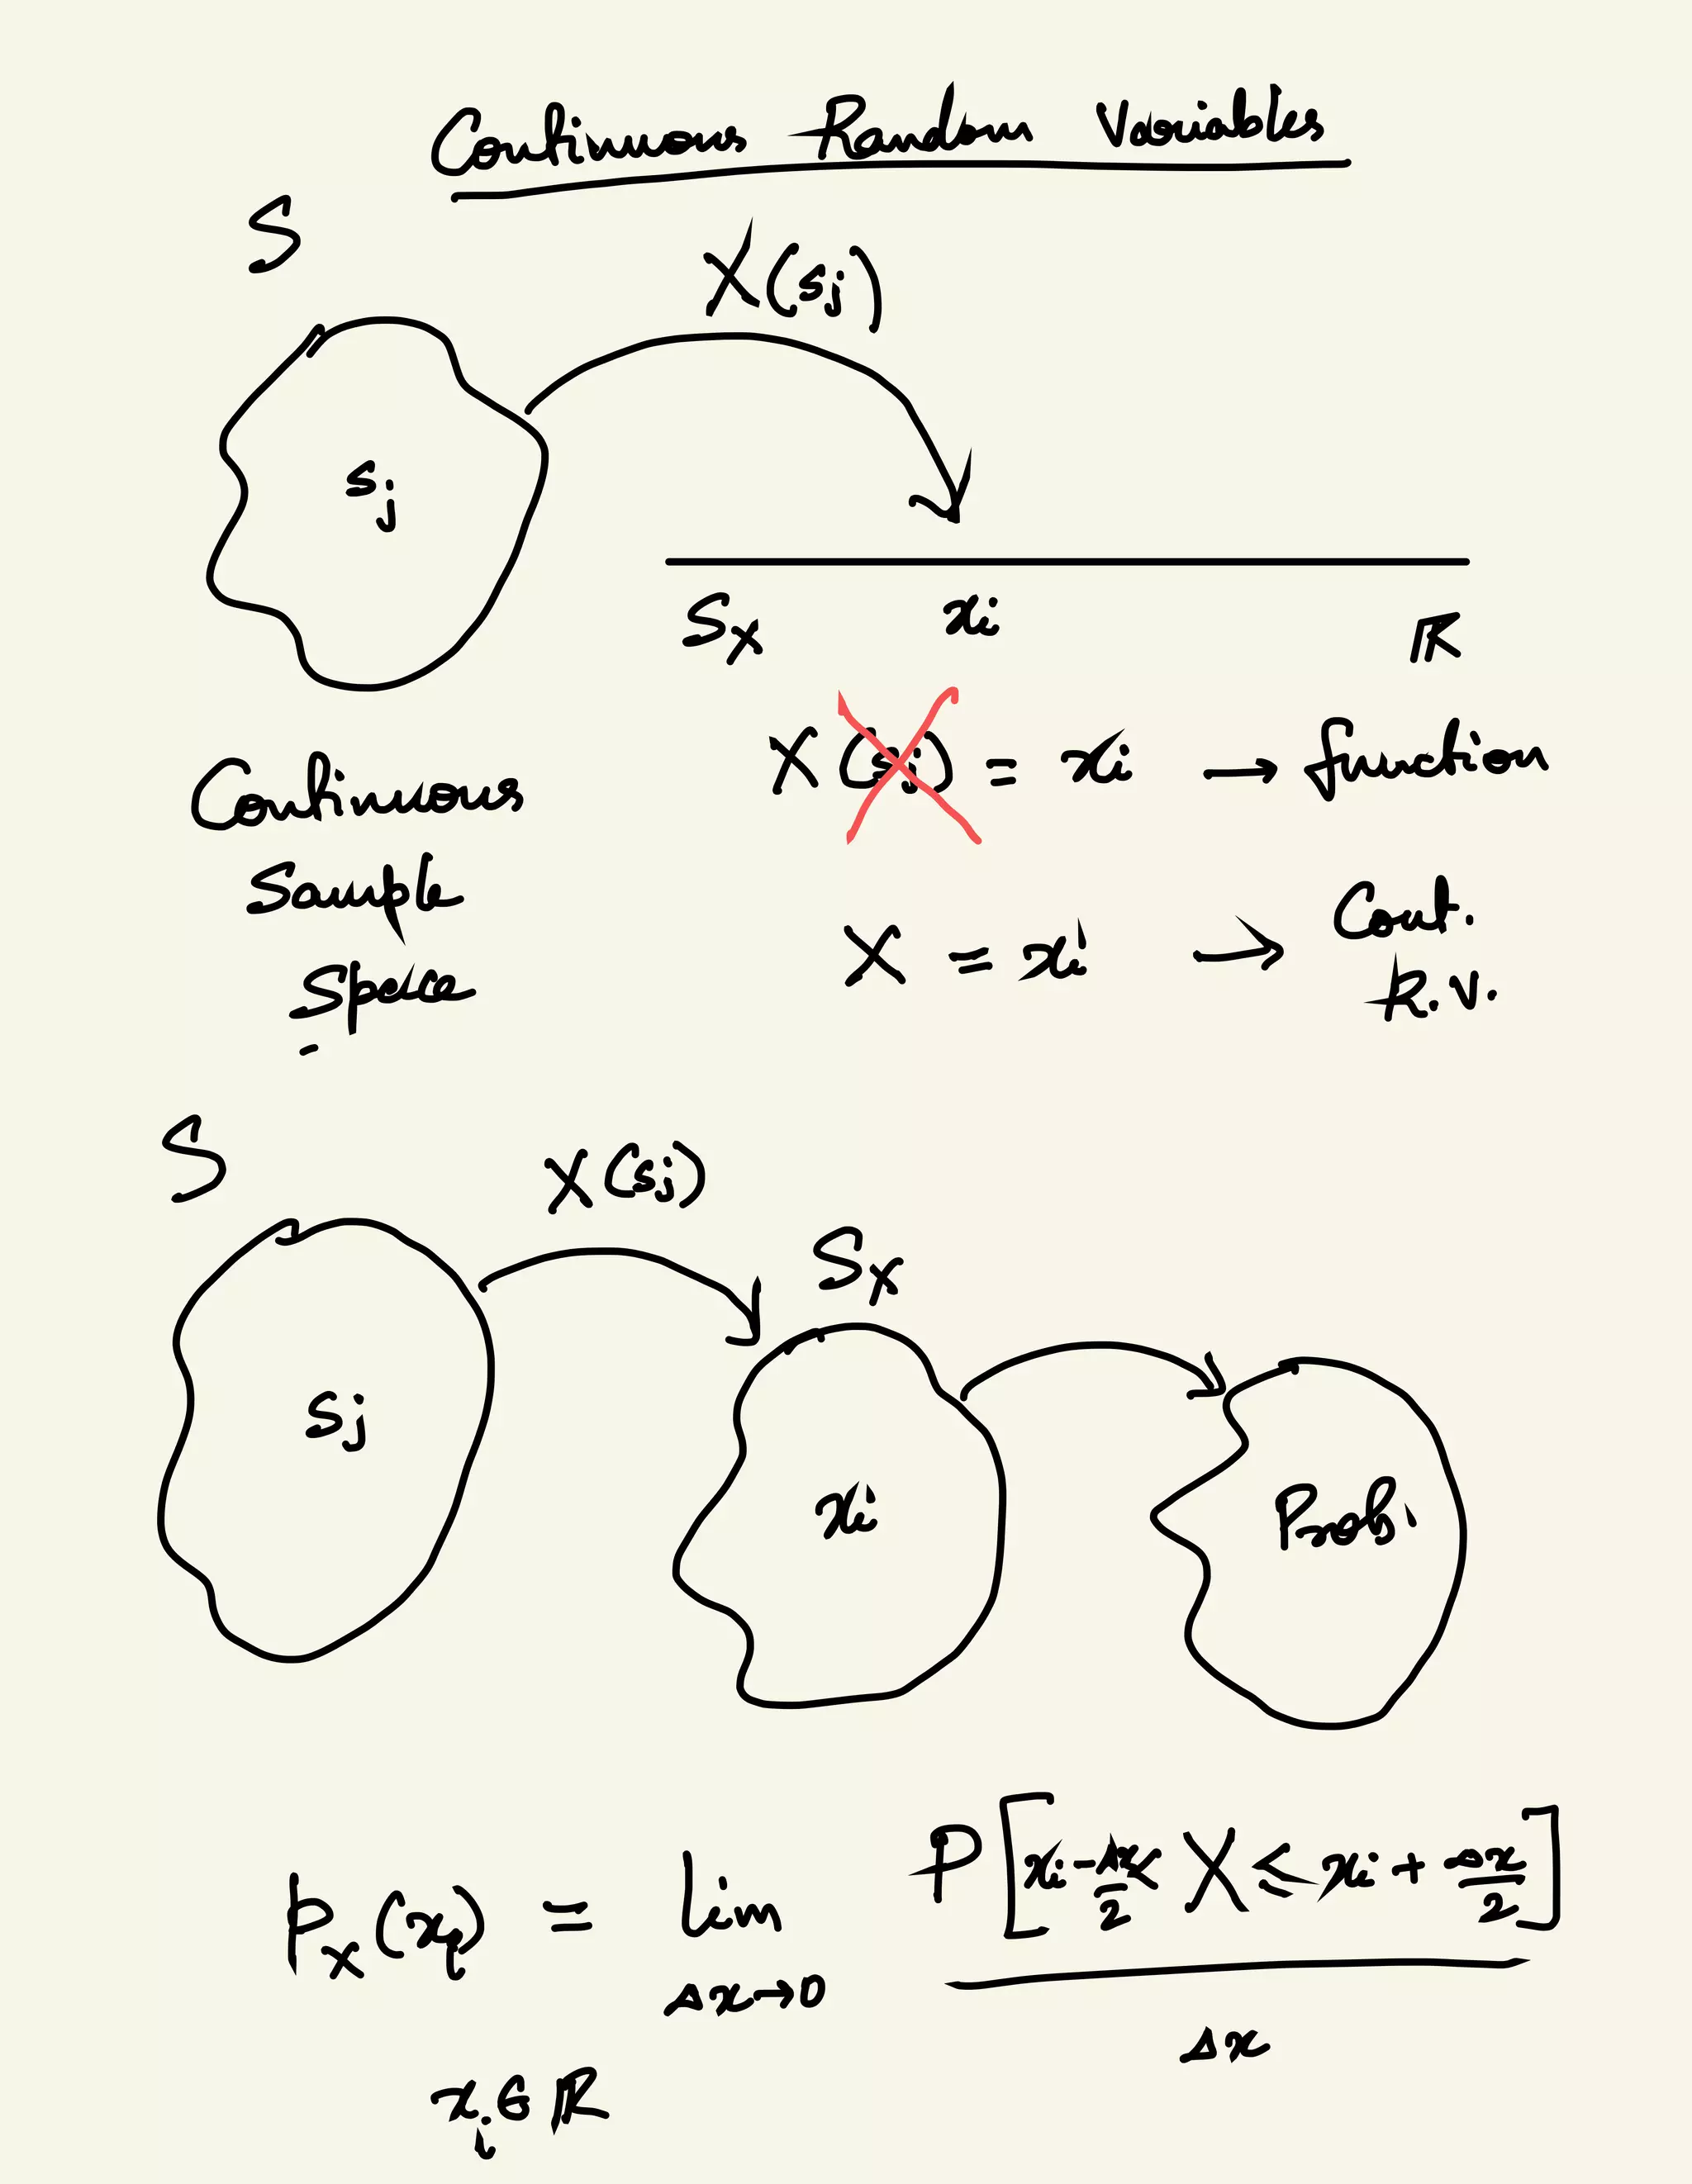 Continuous Random Variables
S
X(sj)
sj
Sx xi R
Continuous
Sample
Space
X (sj) = xi → function
X = xi → Cont.
R.V.
S
X(sj)
Sx
sj
xi
Prob.
px(xi) = lim Δx→0 P[xi - Δx/2 X ≤ xi + Δx/2] / Δx
xi ∈ ℝ